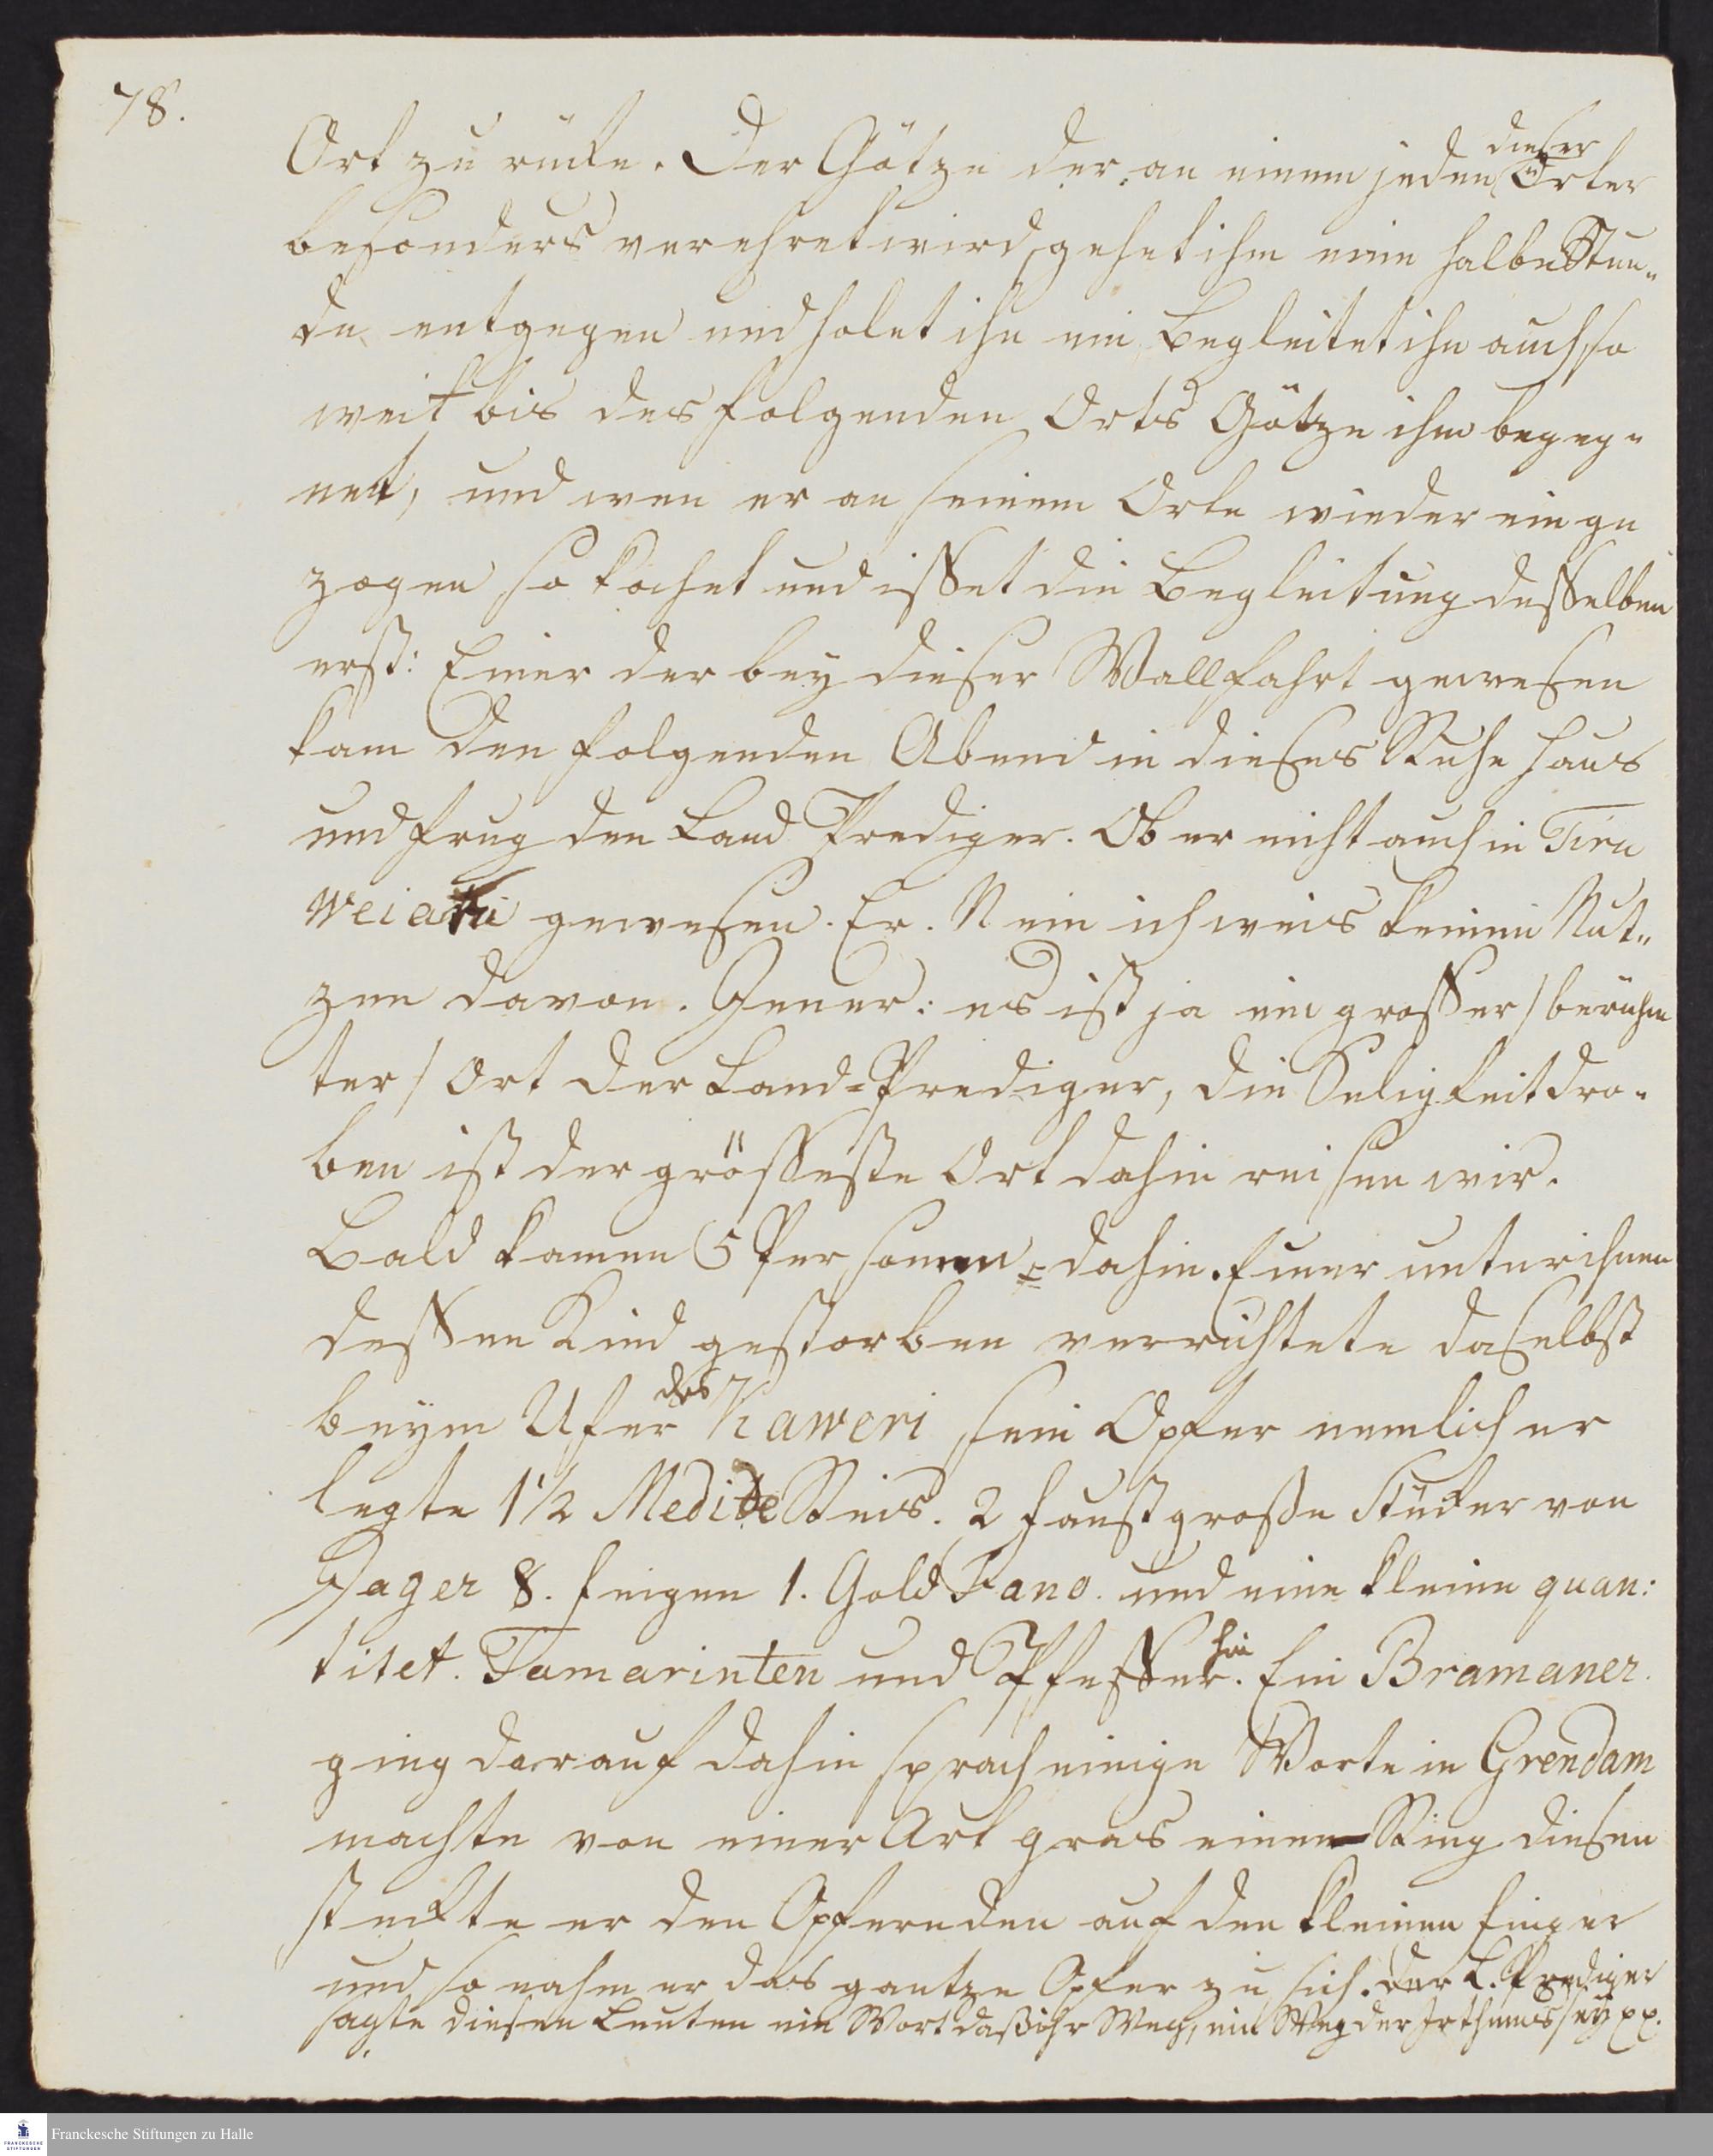 78.
dieser
Ort zu rücke. Der Götze der an einem jeden Örter
besonders verehret wird, gehet ihm eine halbe Stun„
de entgegen und holet ihn ein, Begleitet ihn auch so
weit bis des folgenden Orts Götze ihm begeg„
net, und wen er an seinem Orte wieder einge
zogen so kochet und isset die Begleitung desselben
erst: Einer der bey dieser Wallfahrt gewesen
kam den folgenden Abend in dieses Ruhe Haus
und frug den Land Prediger. Ob er nicht auch in Tiru
weiaru gewesen. Er. Nein ich weis keinen Nut„
zen davon. Gener: es ist ja ein grosser / berühm
ter / Ort der Land-Prediger, die Seligkeit dro„
ben ist der grösseste Ort dahin reisen wir.
Bald kamen 5 Personen dahin. Einer unter ihnen
dessen Kind gestorben verrichtete daselbst
des
beym Ufer Kaweri sein Opfer nemlich er
legte 1 1/2 Medide Reis. 2 faust große Stücker von
Jager 8. feigen 1. Gold Fano. und eine kleine quan:
titet. Tamarinten und Pfeffer. hin Ein Bramaner.
ging darauf dahin sprach einige Worte in Grendam
machte von einer Art gras einen Ring diesen
steckte er den Opfernden auf den kleinen finger
und so nahm er das gantze Opfer zu sich. Der L. Prediger
sagte diesen Leuten ein Wort daß ihr Weg, ein Weg der Irthums sey pp.
Franckesche Stiftungen zu Halle
FRANCKESCHE STIFTUNGEN